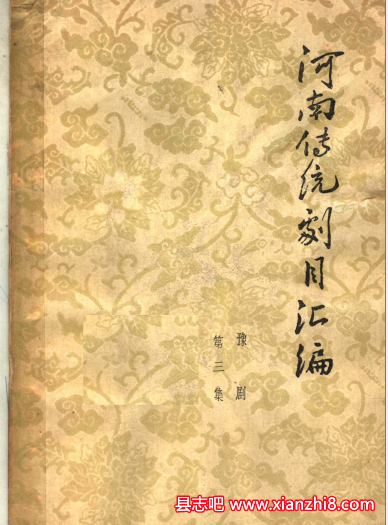 河南传统剧目汇编
豫剧
第三集
县志吧 www.xianzhi8.com